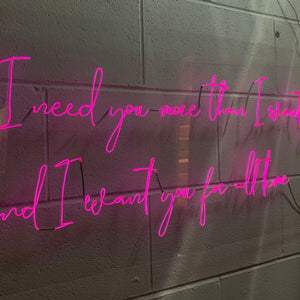 I need you more than I want
and I want you for all time